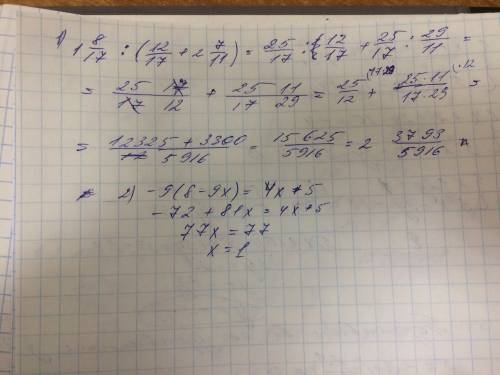 1) 1 8/17 : (12/17 + 2 7/11) = 25/17 : 12/17 + 25/17 : 29/11 =
= 25/17 17/12 + 25/17 11/29 = 25/12 + 25·11/17·29 (·12 =
= 12325 + 3300/5916 = 15625/5916 = 2 3793/5916
2) -9(8-9x) = 4x+5
-72 + 81x = 4x+5
77x = 77
x = 1